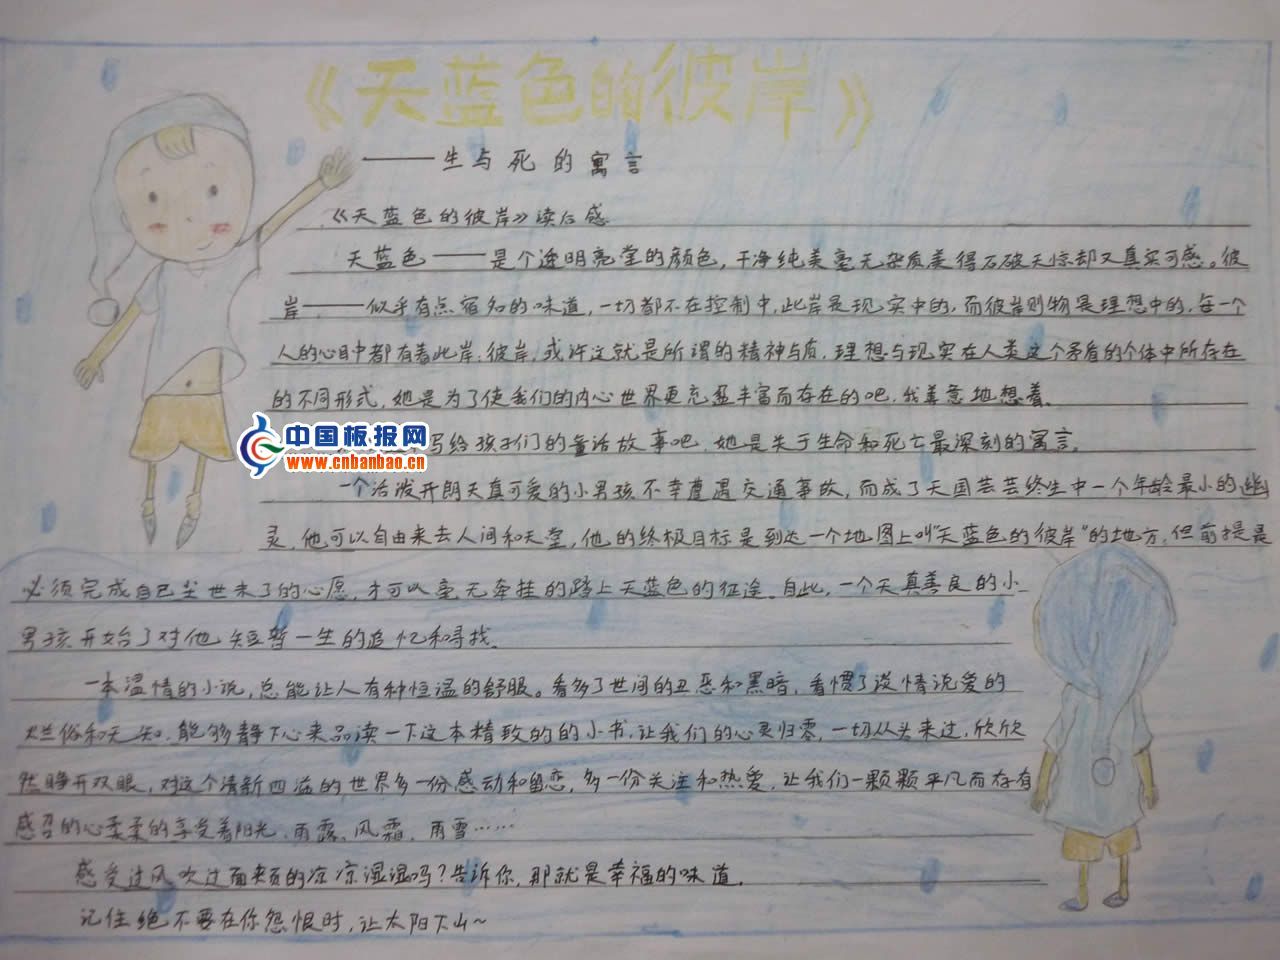 《天蓝色的彼岸》
——生与死的寓言
《天蓝色的彼岸》读后感
天蓝色——是个透明亮堂的颜色，干净纯美毫无杂质美得石破天惊却又真实可感。彼
岸——似乎有点宿命的味道，一切都不在控制中，此岸是现实中的，而彼岸则物是理想中的，每一个
人的心目中都有着此岸；彼岸，或许这就是所谓的精神与质，理想与现实在人类这个矛盾的个体中所存在
的不同形式，她是为了使我们的内心世界更充盈丰富而存在的吧，我善意地想着。
中国板报网
www.cnbanbao.cn
写给孩子们的童话故事吧，她是关于生命和死亡最深刻的寓言。
一个活泼开朗天真可爱的小男孩不幸遭遇交通事故，而成了天国芸芸终生中一个年龄最小的幽
灵，他可以自由来去人间和天堂，他的终极目标是到达一个地图上叫"天蓝色的彼岸"的地方，但前提是
必须完成自己尘世未了的心愿，才可以毫无牵挂的踏上天蓝色的征途。自此，一个天真善良的小
男孩开始了对他短暂一生的追忆和寻找。
一本温情的小说，总能让人有种恒温的舒服。看多了世间的丑恶和黑暗，看惯了谈情说爱的
烂俗和无知，能够静下心来品读一下这本精致的的小书，让我们的心灵归零，一切从头来过，欣欣
然睁开双眼，对这个清新四溢的世界多一份感动和留恋，多一份关注和热爱，让我们一颗颗平凡而存有
感召的心柔柔的享受着阳光、雨露、风霜、雨雪……
感受过风吹过面颊的凉凉湿湿吗？告诉你，那就是幸福的味道。
记住绝不要在你怨恨时，让太阳下山~